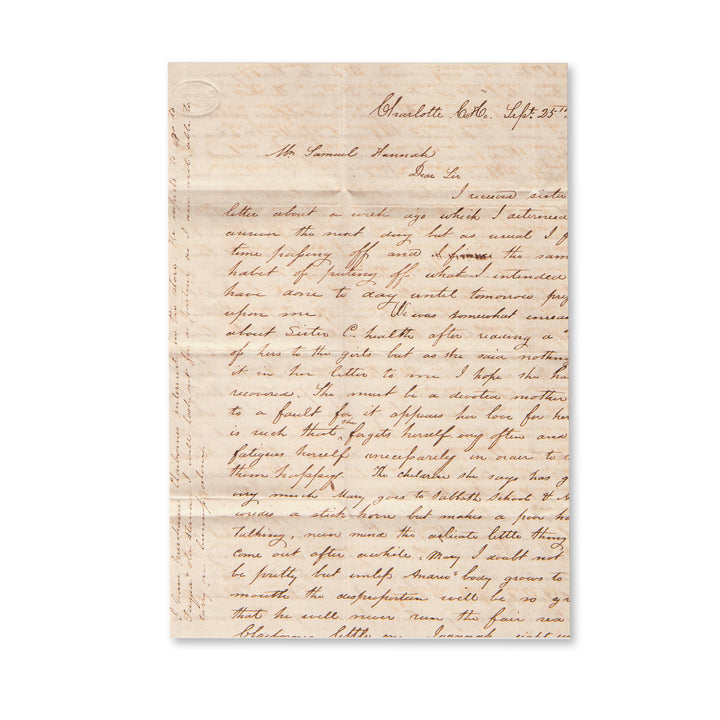 Charlotte C.H. Sept. 25th
Mr. Samuel Hannah
Dear Sir
I received sister
letter about a week ago which I determined
answer the next day but as usual I f
time passing off and the sam
habit of puting off what I intended
have done to day until tomorrow prey
upon me. was somewhat uneas
about Sister C. health after reading a
of hers to the girls but as she said nothing
it in her letter to me I hope she ha
recovered. She must be a devoted mother
to a fault for it appears her love for her
is such that she forgets herself very often and
fatigues herself unecessarily in order to
them happy. The children she says has g
very much Mary goes to Sabbath School &
a stick horse but makes a poor ha
talking, never mind the delicate little thing
come out after awhile. Mary I doubt not
be pretty but unless Andrew's body grows to
mouth the disproportion will be so gr
that he will never run the fair sex
little one eight
I have purchased interest in the store He expects to go to
I will look out for a partner as I am not able to
carry on business alone.